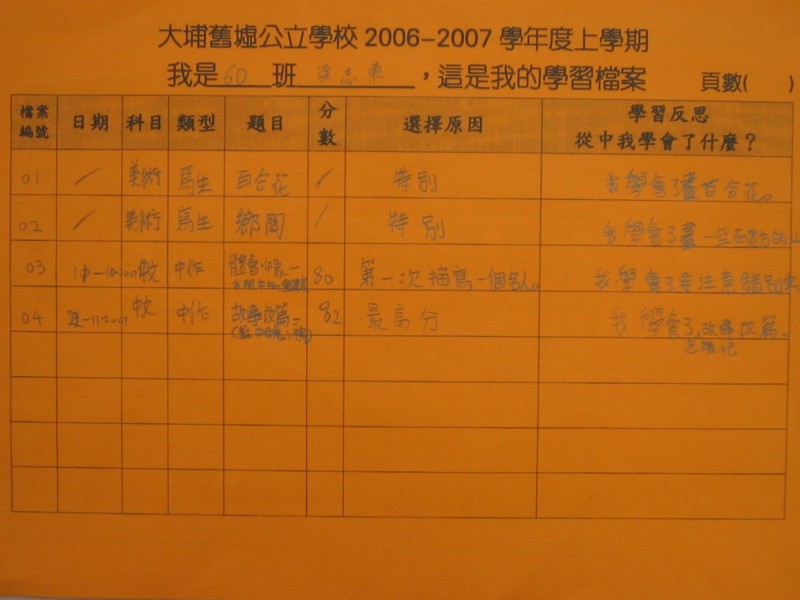 大埔舊墟公立學校 2006-2007 學年度上學期
我是 6D 班，這是我的學習檔案 頁數( )
檔案編號 日期 科目 類型 題目 分數 選擇原因 學習反思 從中我學會了什麼？
01 / 美術 寫生 百合花 / 特別 我學會了畫百合花。
02 / 美術 寫生 / 特別 我學會了畫一些
03 中文 中作 80 第一次描寫一個名人。 我學會了要注意錯別字
04 中文 中作 故事改篇 82 最高分 我學會了故事改篇。